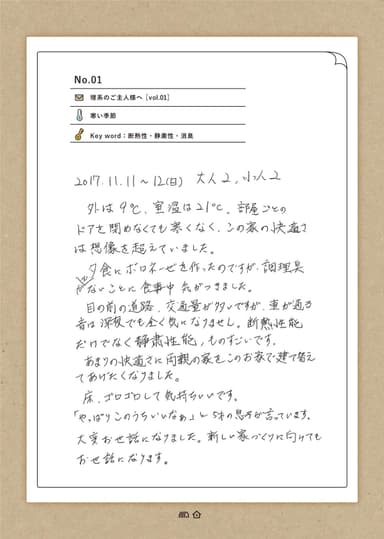 No.01
様系のご主人様へ [vol.01]
寒い季節
Key word：断熱性・静粛性・消臭
2017.11.11〜12(日) 大人2、小人2
外は9℃、室温は21℃。部屋ごとの
ドアを閉めなくても寒くなく、この家の快適さ
は想像を超えていました。
夕食にボロネーゼを作ったのですが、調理臭
がないことに食事中気がつきました。
目の前の道路、交通量が多いですが、車が通る
音は深夜でも全く気になりません。断熱性能
だけでなく静粛性能、ものすごいです。
あまりの快適さに両親の家をこのお家で建て替え
てあげたくなりました。
床、ゴロゴロして気持ちいいです。
「やっぱりこのうちいいなぁ」と5才の息子が言っています。
大変お世話になりました。新しい家づくりに向けても
お世話になります。